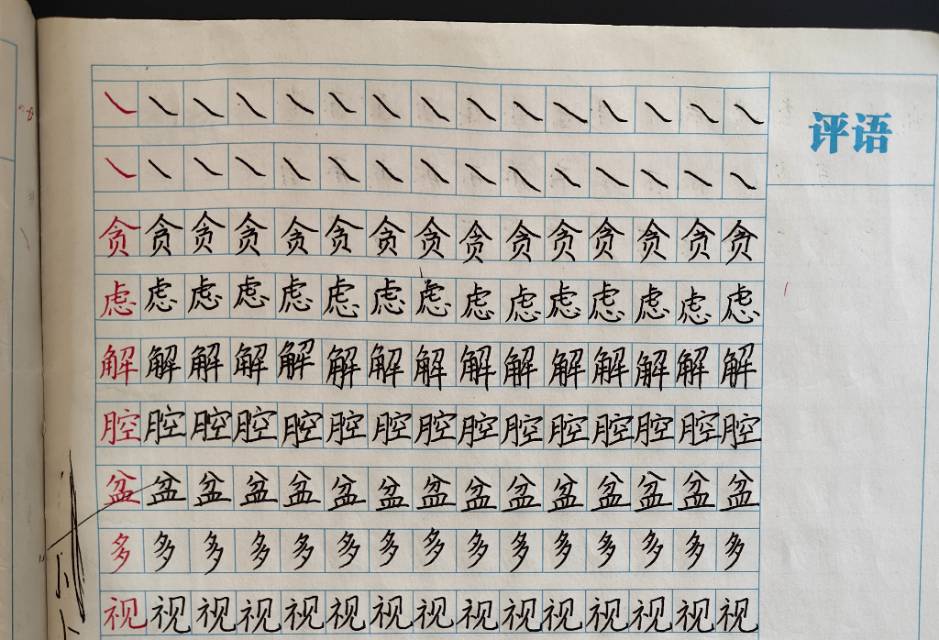 评语
贪贪贪贪贪贪贪贪贪贪贪贪贪贪贪
虑虑虑虑虑虑虑虑虑虑虑虑虑虑虑
解解解解解解解解解解解解解解解
腔腔腔腔腔腔腔腔腔腔腔腔腔腔腔
盆盆盆盆盆盆盆盆盆盆盆盆盆盆盆
多多多多多多多多多多多多多多多
视视视视视视视视视视视视视视视